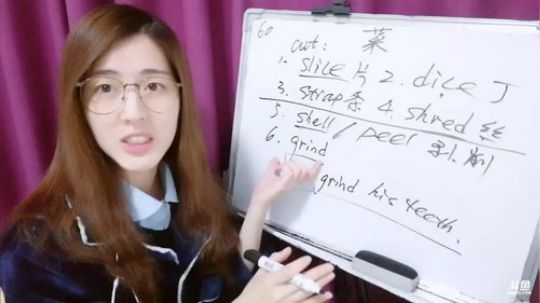 60
cut: 菜
1. slice 片 2. dice 丁
3. strap 条 4. shred 丝
5. shell / peel 剥 削
6. grind
grind his teeth.
斗鱼